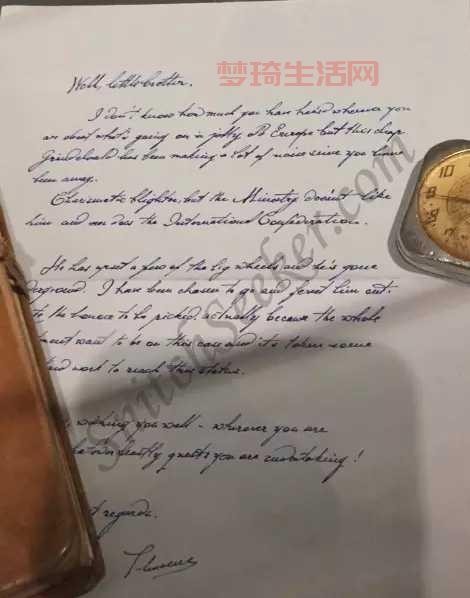 梦琦生活网
Well, little brother.
I don't know how much you have heard wherever you
are about what's going on in jolly old Europe but this chap
Grindelwald has been making a lot of noise since you have
been away.
Charismatic blighter, but the Ministry doesn't like
him and nor does the International Confederation.
He has upset a few of the big wheels and he's gone
I have been chosen to go and ferret him out.
to be picked, actually because the whole
want to be on this case and it's taken some
work to reach this status.
wishing you well - wherever you are
quests you are undertaking!
regards.
Theseus
SnitchSeeker.com
10
9
8